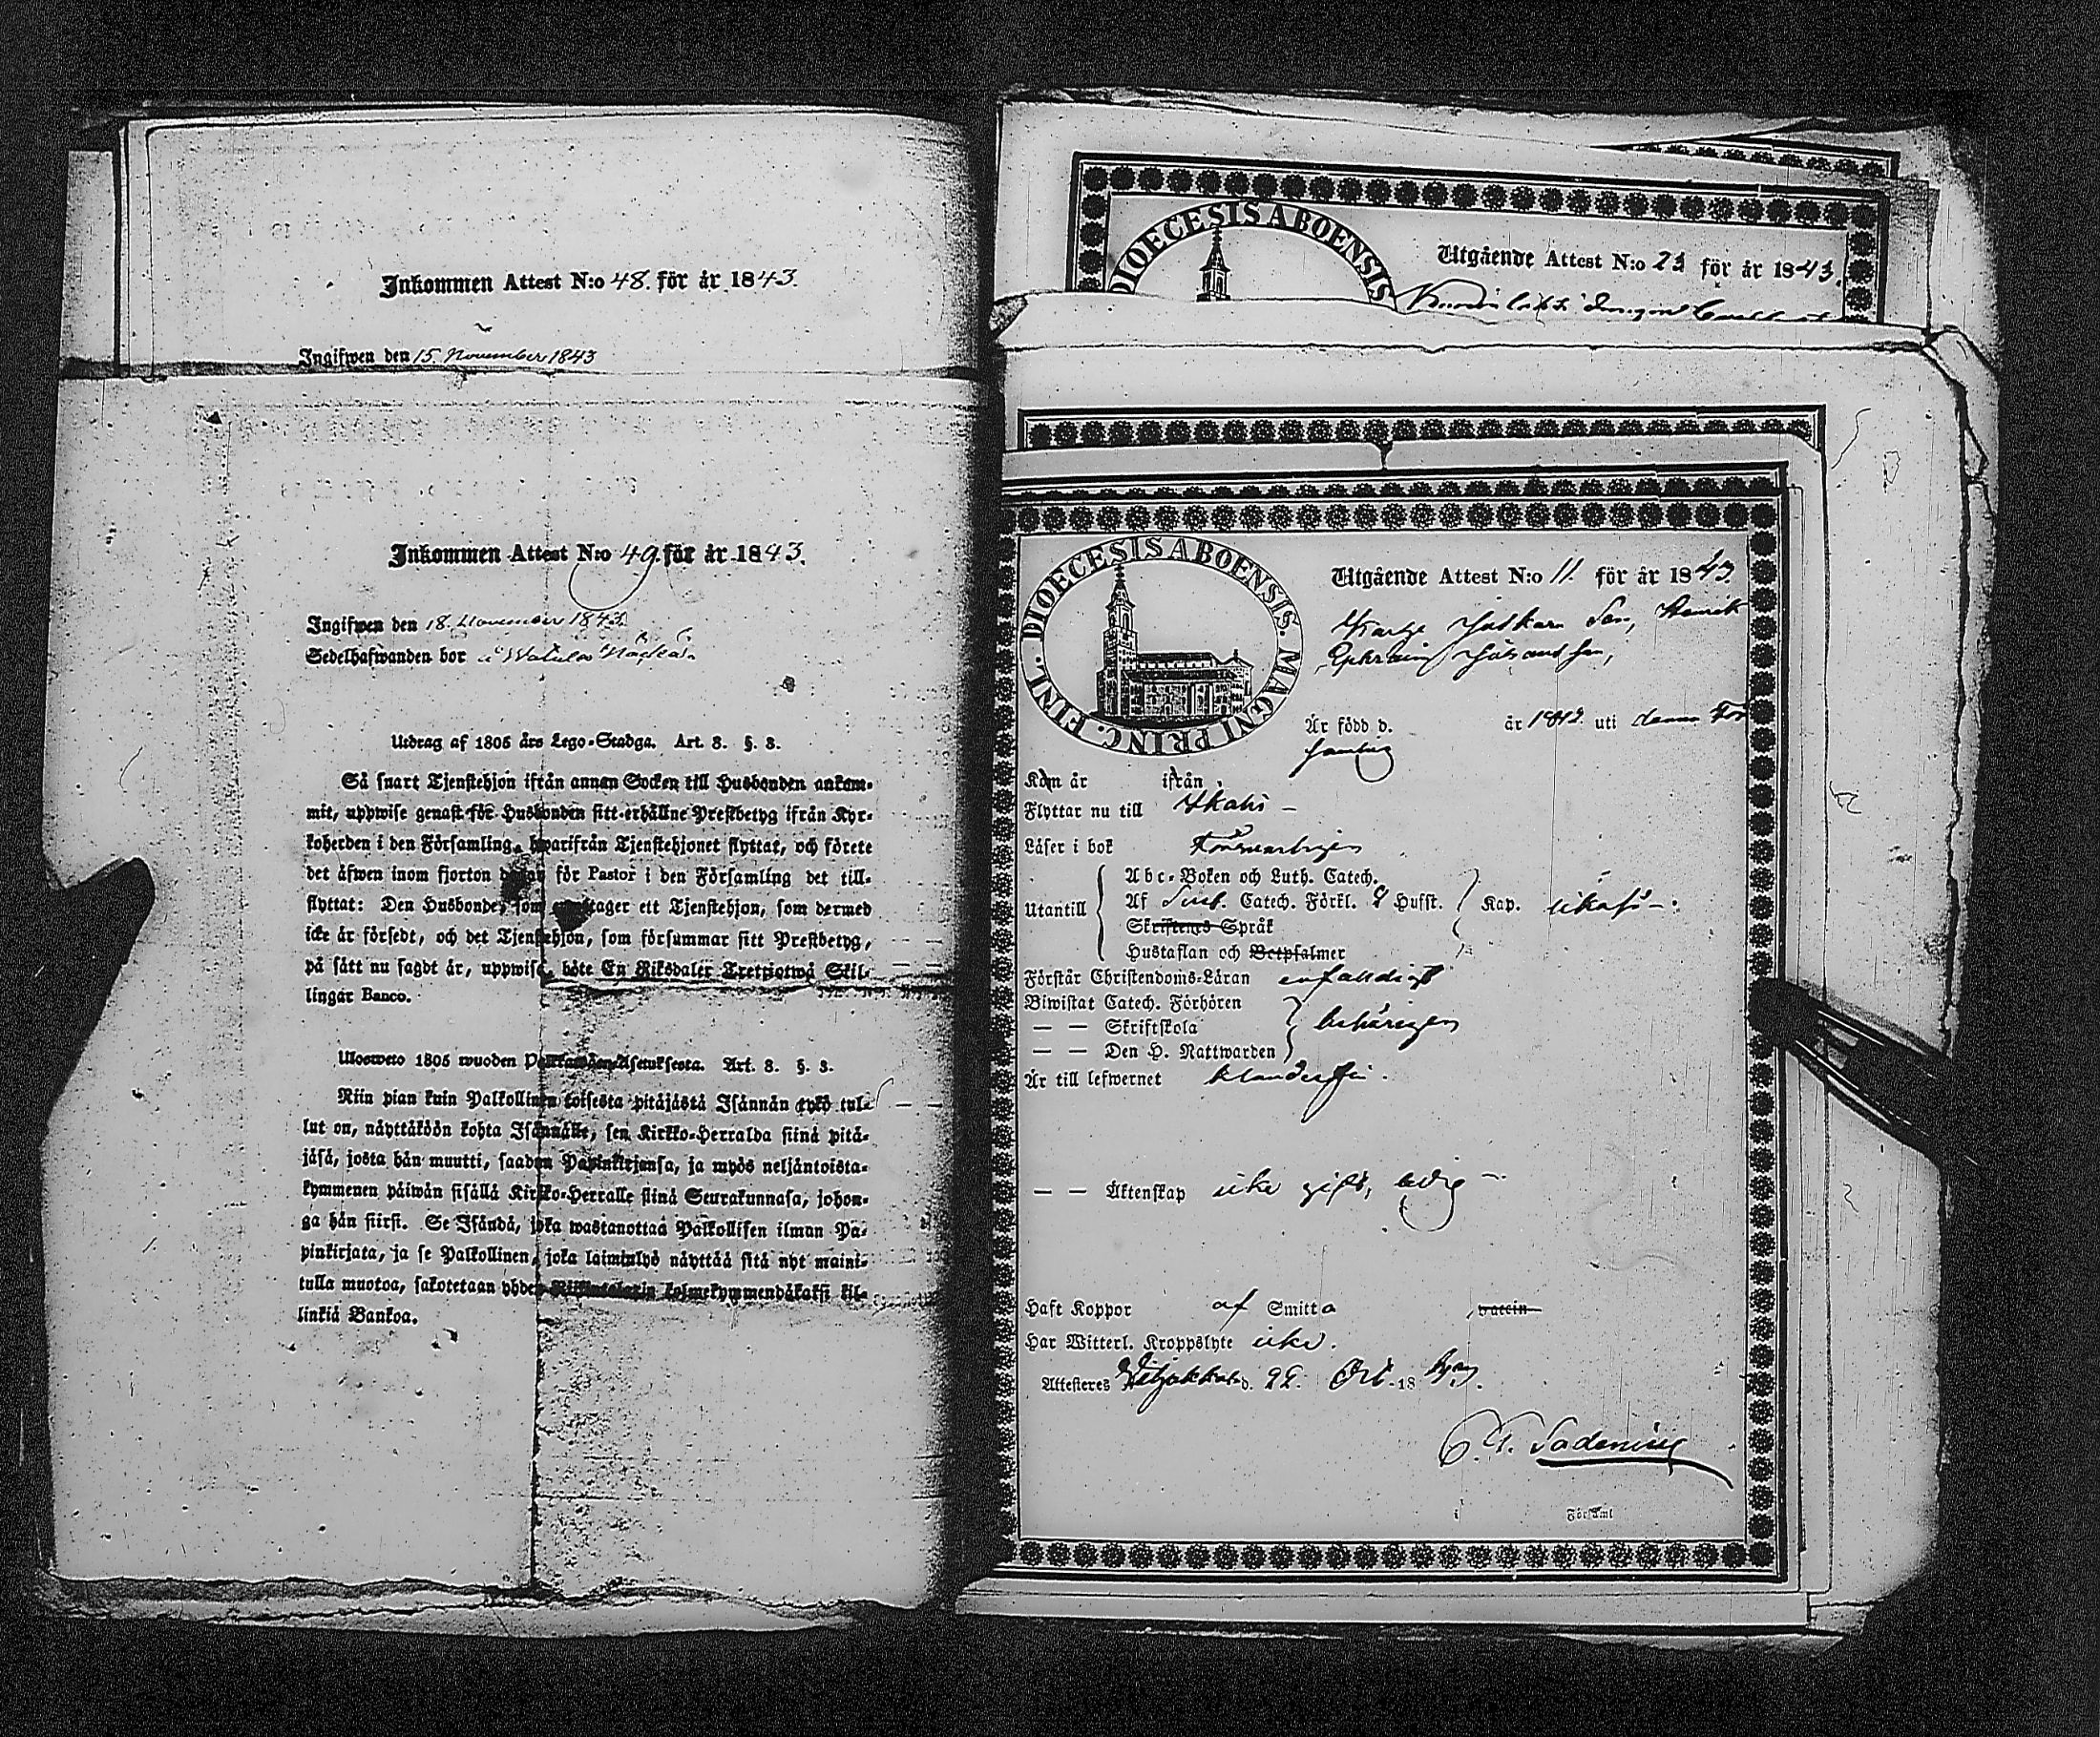 Inkommen Attest N:o 48. för år 1843.
Ingifwen den 15. November 1843
Inkommen Attest N:o 49. för år 1843.
Ingifwen den 18. November 1843.
Sedelhafwanden bor i
Utdrag af 1805 års Lego-Stadga. Art. 3. §. 3.
Så snart Tjenstehjon ifrån annan Socken till Husbonden ankom-
mit, uppwise genast för Husbonden sitt erhållne Prestbetyg ifrån Kyr-
koherden i den Församling, hwarifrån Tjenstehjonet flyttat, och förete
det äfwen inom fjorton dagar för Pastor i den Församling det till-
flyttat: Den Husbonde, som emottager ett Tjenstehjon, som dermed
icke är försedt, och det Tjenstehjon, som försummar sitt Prestbetyg,
på sätt nu sagdt är, uppwisa, böte En Riksdaler Trettiotwå Skil-
lingar Banco.
Ulosweto 1805 wuoden Palkkawäen Asetuksesta. Art. 3. §. 3.
Niin pian kuin Palkollinen toisesta pitäjästä Isännän tykö tul-
lut on, näyttäköön kohta Isännälle, sen Kirkko-Herralda siinä pitä-
jäsä, josta hän muutti, saadun Papinkirjansa, ja myös neljäntoista-
kymmenen päiwän sisällä Kirkko-Herralle siinä Seurakunnasa, johon-
ga hän siirsi. Se Isändä, joka wastanottaa Palkollisen ilman Pa-
pinkirjata, ja se Palkollinen, joka laiminlyö näyttää sitä nyt maini-
tulla muotoa, sakotetaan yhden Riikintalarin kolmekymmendäkaksi kil-
linkiä Bankoa.
DIOECESIS ABOENSIS
Utgående Attest N:o 23 för år 1843.
DIOECESIS ABOENSIS. MAGNI PRINC. FINL.
Utgående Attest N:o 11. för år 1843.
Son, Henrik
Ephraim
Är född d. år 1812. uti denna För
samling
Kom år ifrån
Flyttar nu till Ikalis –
Läser i bok
Utantill
Abc-Boken och Luth. Catech.
Af Sveb. Catech. Förkl. 9 Hufst. Kap.
Skriftens Språk
Hustaflan och Botpsalmer
Förstår Christendoms-Läran enfaldigt
Biwistat Catech. Förhören
— — Skriftskola behörigen
— — Den H. Nattwarden
Är till lefwernet klanderfri.
— — Äktenskap icke gift, ledig –
Haft Koppor af Smitta vaccin
Har Witterl. Kroppslyte icke.
Attesteres d. 22. Oct. 1843.
Församl